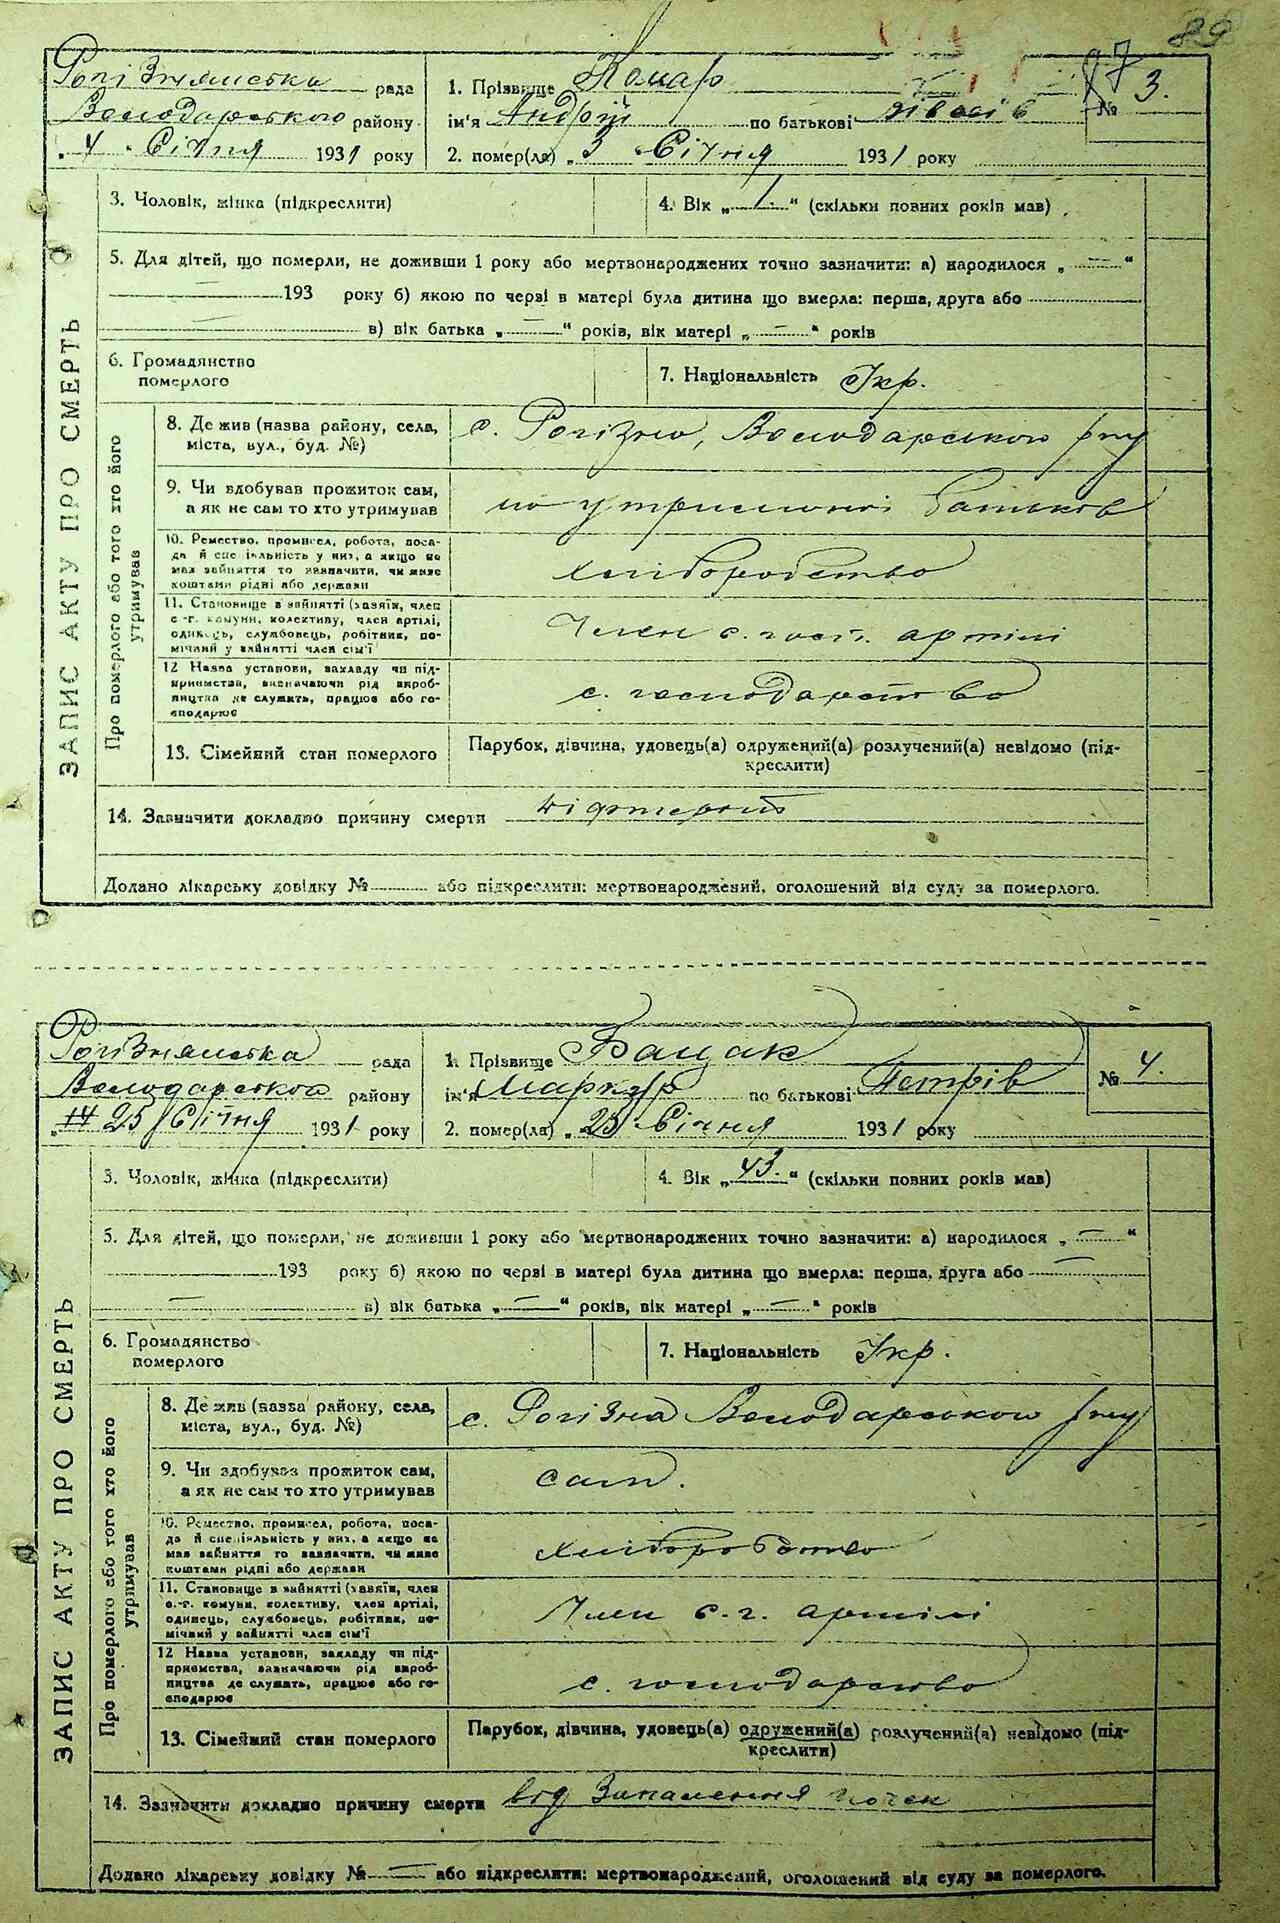 89
87
Рогізнянська рада
Володарського району
„ 4 „ Січня 1931 року
1. Прізвище Комар
ім'я Андрій по батькові
2. помер(ла) „ 3 „ Січня 1931 року
№ 3.
ЗАПИС АКТУ ПРО СМЕРТЬ
3. Чоловік, жінка (підкреслити)
4. Вік „ 1. “ (скільки повних років мав)
5. Для дітей, що померли, не доживши 1 року або мертвонароджених точно зазначити: а) народилося „ — “
— 193 року б) якою по черзі в матері була дитина що вмерла: перша, друга або
в) вік батька „ — “ років, вік матері „ — “ років
6. Громадянство
померлого
7. Національність Укр.
Про померлого або того хто його
утримував
8. Де жив (назва району, села,
міста, вул., буд. №)
с. Рогізно, Володарського р-ну
9. Чи здобував прожиток сам,
а як не сам то хто утримував
на утриманні батьков
10. Ремество, промисел, робота, поса-
да й спеціяльність у них, а якщо не
мав зайняття то зазначити, чи живе
коштами рідні або держави
хліборобство
11. Становище в зайнятті (хазяїн, член
с.-г. комуни, колективу, член артілі,
одинець, службовець, робітник, по-
мічний у зайнятті член сім'ї
Член с. госп. артілі
12 Назва установи, закладу чи під-
приємства, визначаючи рід вироб-
ництва де служить, працює або го-
сподарює
с. господарство
13. Сімейний стан померлого
Парубок, дівчина, удовець(а) одружений(а) розлучений(а) невідомо (під-
креслити)
14. Зазначити докладно причину смерти
Додано лікарську довідку № або підкреслити: мертвонароджений, оголошений від суду за померлого.
Рогізнянська рада
Володарського району
„ 25 / Січня 1931 року
1. Прізвище Бацак
ім'я Маркур по батькові Петрів
2. помер(ла) „ 25 „ Січня 1931 року
№ 4.
ЗАПИС АКТУ ПРО СМЕРТЬ
3. Чоловік, жінка (підкреслити)
4. Вік „ 43. “ (скільки повних років мав)
5. Для дітей, що померли, не доживши 1 року або мертвонароджених точно зазначити: а) народилося „ — “
193 року б) якою по черзі в матері була дитина що вмерла: перша, друга або —
— в) вік батька „ — “ років, вік матері „ — “ років
6. Громадянство
померлого
7. Національність Укр.
Про померлого або того хто його
утримував
8. Де жив (назва району, села,
міста, вул., буд. №)
с. Рогізна Володарського р-ну
9. Чи здобував прожиток сам,
а як не сам то хто утримував
сам.
10. Ремество, промисел, робота, поса-
да й спеціяльність у них, а якщо не
мав зайняття то зазначити, чи живе
коштами рідні або держави
хліборобство
11. Становище в зайнятті (хазяїн, член
с.-г. комуни, колективу, член артілі,
одинець, службовець, робітник, по-
мічний у зайнятті член сім'ї
Член с. г. артілі
12 Назва установи, закладу чи під-
приємства, визначаючи рід вироб-
ництва де служить, працює або го-
сподарює
с. господарство
13. Сімейний стан померлого
Парубок, дівчина, удовець(а) одружений(а) розлучений(а) невідомо (під-
креслити)
14. Зазначити докладно причину смерти від Запалення почек
Додано лікарську довідку № — або підкреслити: мертвонароджений, оголошений від суду за померлого.